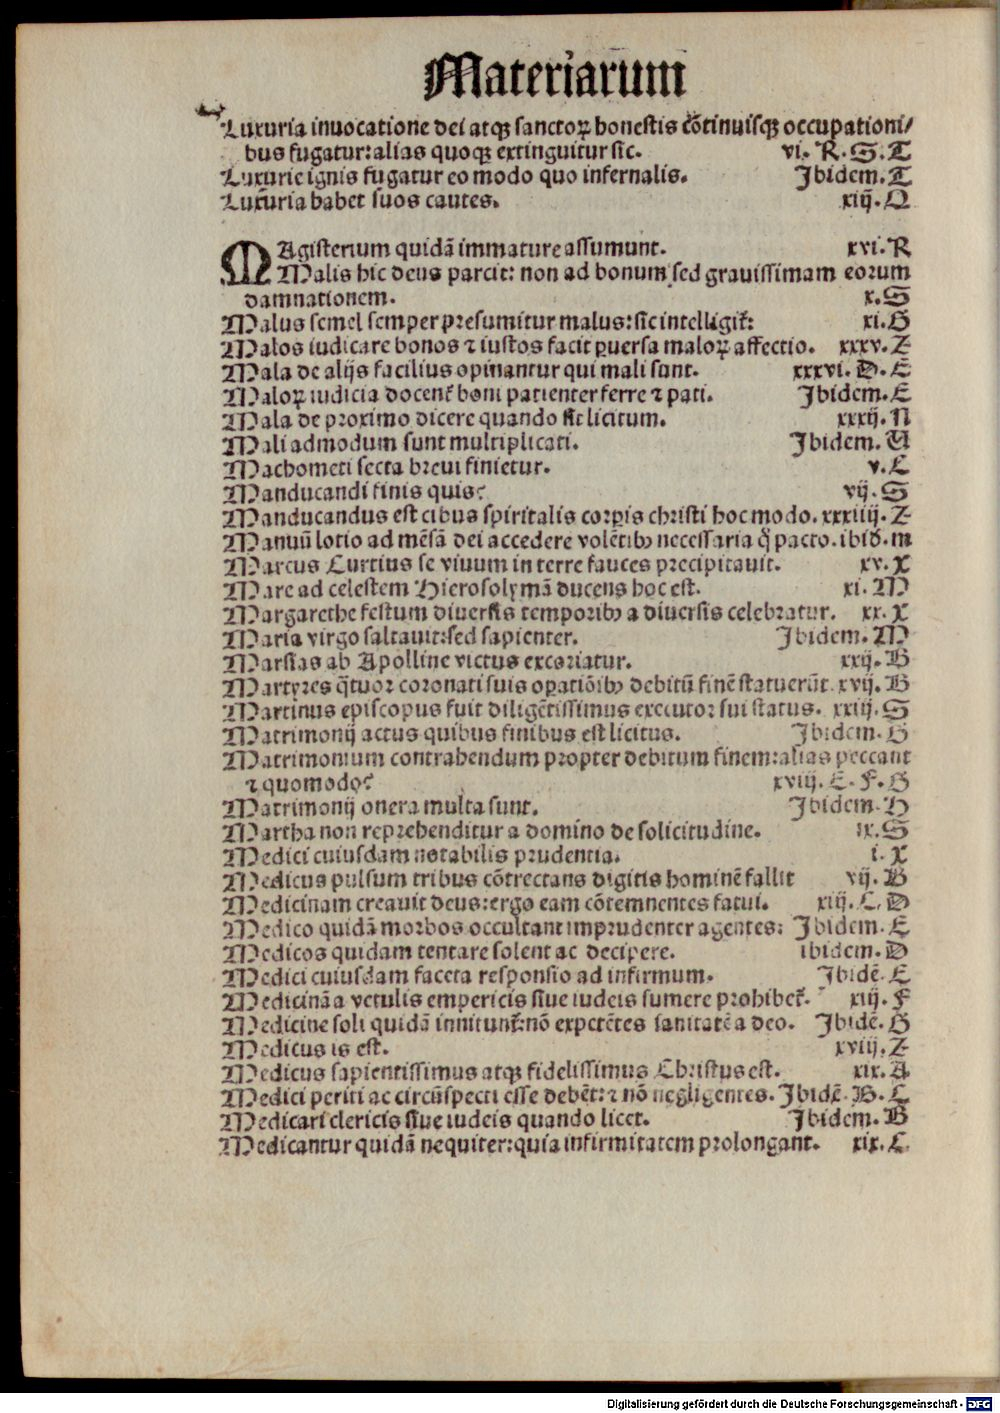 Materiarum
Luxuria inuocatione dei atqꝫ sanctoꝝ honestis cōtinuisqꝫ occupationi/
bus fugatur: alias quoqꝫ extinguitur sic. vi. R. S. T
Luxurie ignis fugatur eo modo quo infernalis. Ibidem. T
Luxuria habet suos cautes. xiij. Q
MAgisterium quidā immature assumunt. xvi. R
Malis hic deus parcit: non ad bonum sed grauissimam eorum
damnationem. x. S
Malus semel semper presumitur malus: sic intelligit̄: xi. G
Malos iudicare bonos ⁊ iustos facit ꝑuersa maloꝝ affectio. xxxv. Z
Mala de alijs facilius opinantur qui mali sunt. xxxvi. D. E
Maloꝝ iudicia docent̄ boni patienter ferre ⁊ pati. Ibidem. E
Mala de proximo dicere quando sit licitum. xxxij. N
Mali admodum sunt multiplicati. Ibidem. U
Machometi secta breui finietur. v. C
Manducandi finis quis? vij. S
Manducandus est cibus spiritalis corꝑis christi hoc modo. xxxiiij. Z
Manuū lotio ad mēsā dei accedere volētibꝰ necessaria q̄ pacto. ibid. m
Marcus Curtius se viuum in terre fauces precipitauit. xv. X
Mare ad celestem Hierosolymā ducens hoc est. xi. M
Margarethe festum diuersis temporibꝰ a diuersis celebratur. xx. X
Maria virgo saltauit: sed sapienter. Ibidem. M
Marsias ab Apolline victus excoriatur. xxij. B
Martyres q̄tuor coronati suis oꝑatiōibꝰ debitū finē statuerūt. xvij. B
Martinus episcopus fuit diligētissimus executor sui status. xxiij. S
Matrimonij actus quibus finibus est licitus. Ibidem. G
Matrimonium contrahendum propter debitum finem: alias peccant
⁊ quomodo? xviij. E. F. G
Matrimonij onera multa sunt. Ibidem. H
Martha non reprehenditur a domino de solicitudine. ix. S
Medici cuiusdam notabilis prudentia. i. X
Medicus pulsum tribus cōtrectans digitis hominē fallit vij. B
Medicinam creauit deus: ergo eam cōtemnentes fatui. xiij. C. D
Medico quidā morbos occultant imprudenter agentes: Ibidem. E
Medicos quidam tentare solent ac decipere. ibidem. D
Medici cuiusdam faceta responsio ad infirmum. Ibidē. E
Medicinā a vetulis empericis siue iudeis sumere prohibet̄. xiij. F
Medicine soli quidā innitunt̄: nō expetētes sanitatē a deo. Ibidē. G
Medicus is est. xviij. Z
Medicus sapientissimus atqꝫ fidelissimus Christus est. xix. A
Medici periti ac circūspecti esse debēt: ⁊ nō negligentes. Ibidē. B. C
Medicari clericis siue iudeis quando licet. Ibidem. B
Medicantur quidā nequiter: quia infirmitatem prolongant. xix. C
Digitalisierung gefördert durch die Deutsche Forschungsgemeinschaft - DFG